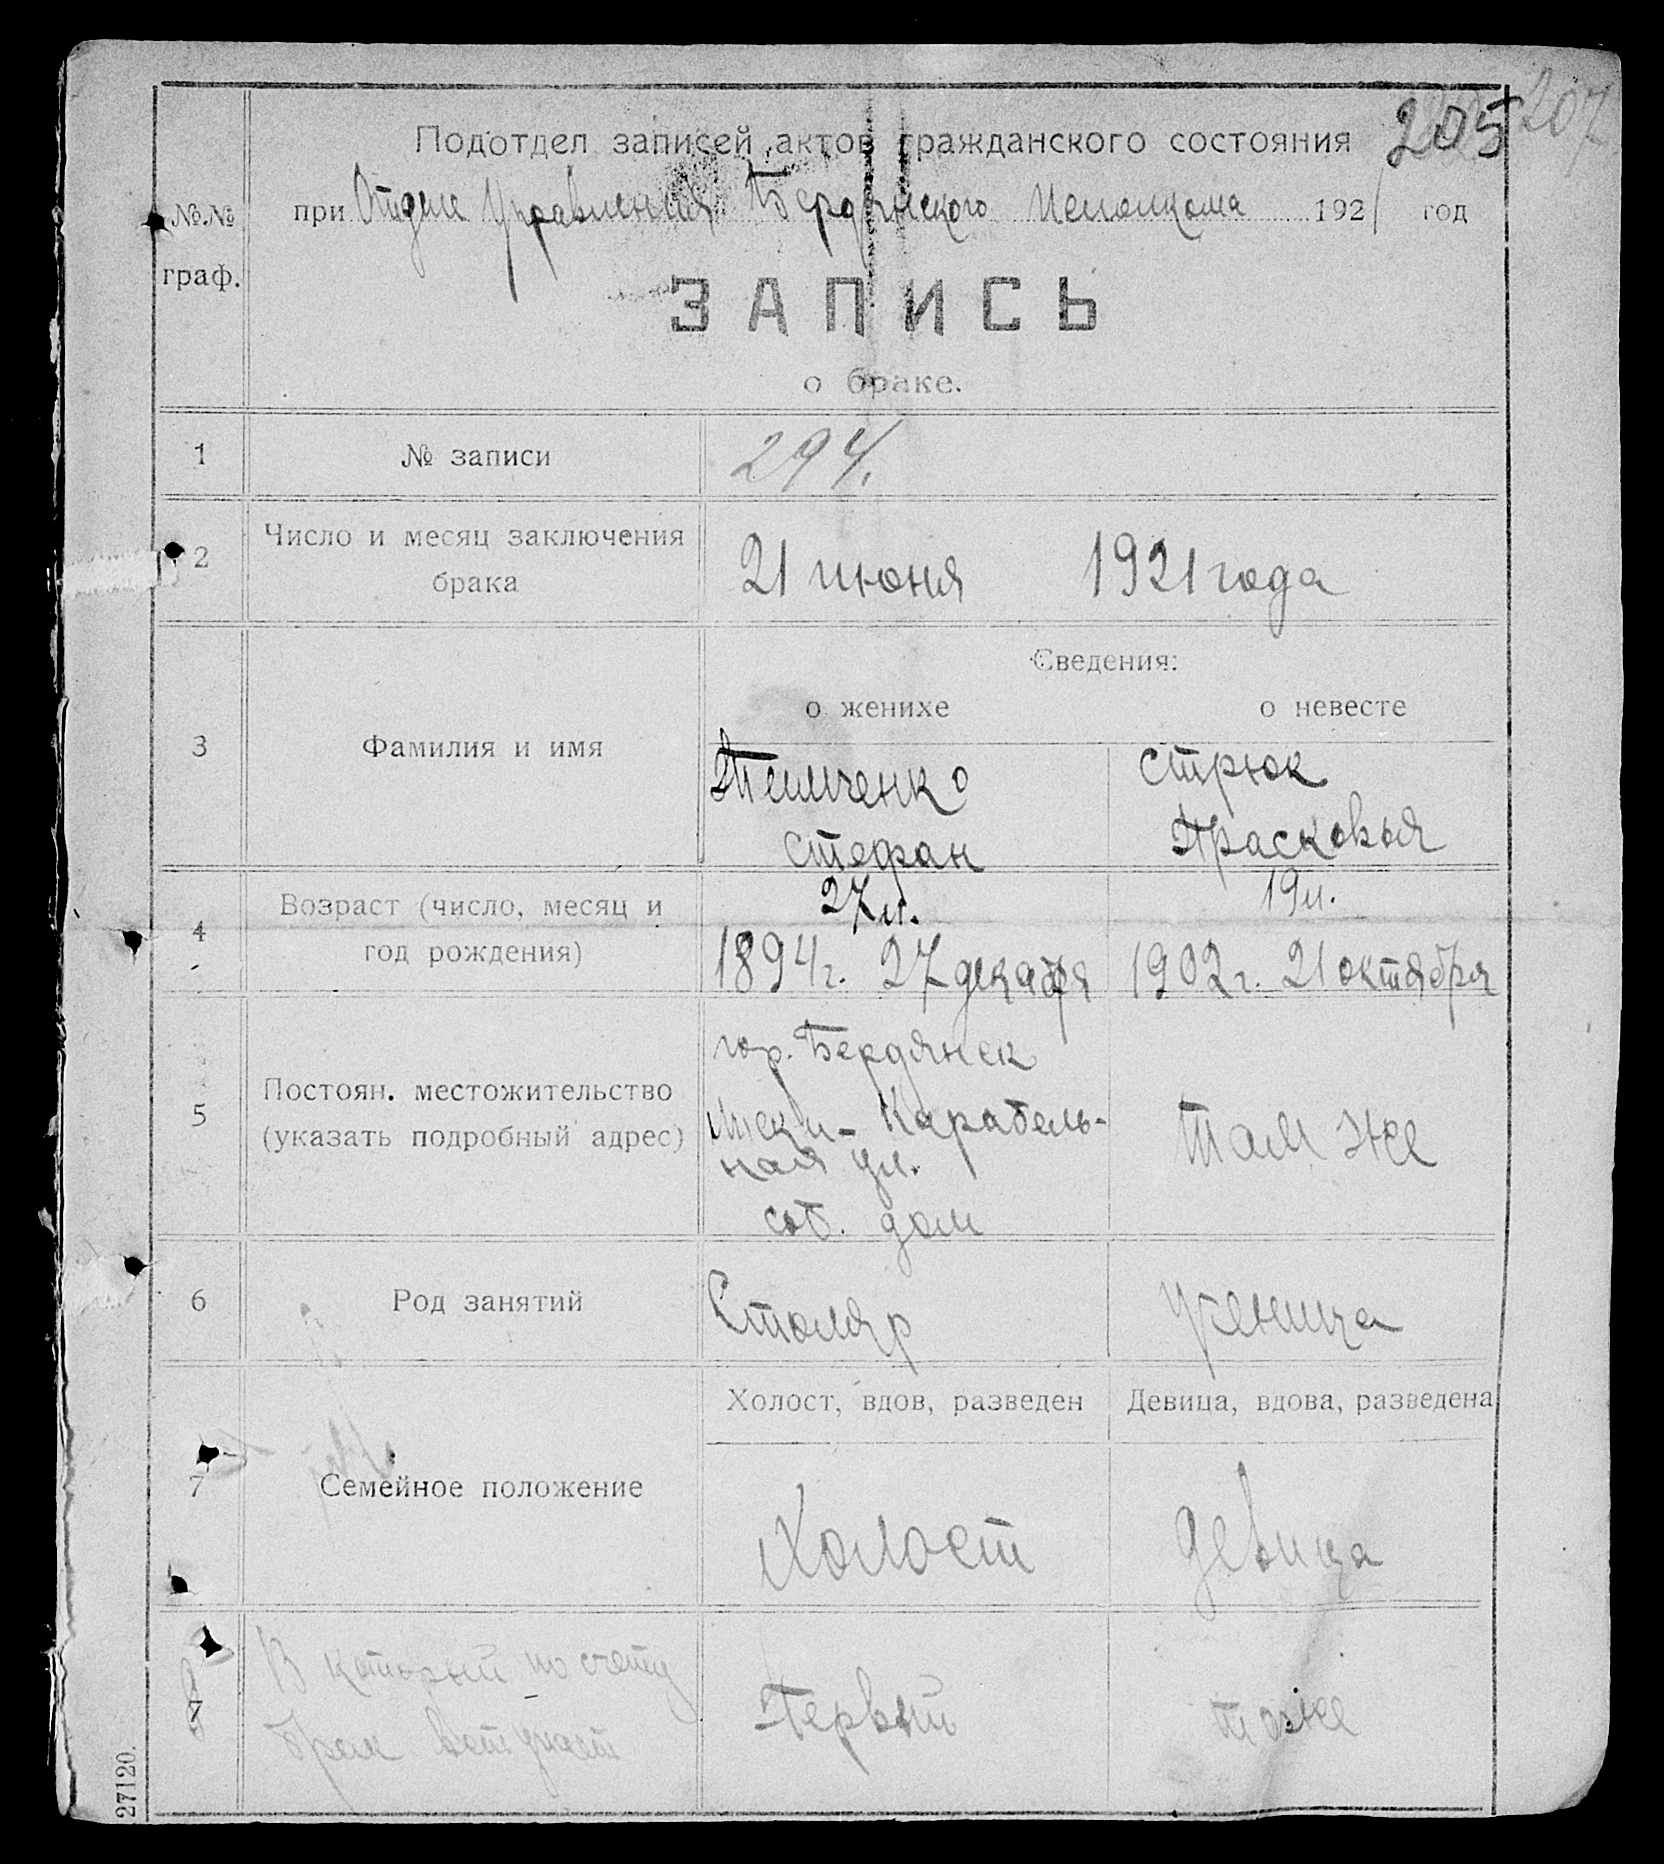 205 207
Подотдел записей актов гражданского состояния
при Отделе Управления Бердянского Исполкома 1921 год
№№
граф.
ЗАПИСЬ
о браке.
1 № записи 294.
2 Число и месяц заключения
брака
21 июня 1921 года
Сведения:
о женихе о невесте
3 Фамилия и имя
Темченко Стрюк
Стефан Прасковья
4 Возраст (число, месяц и
год рождения)
27 л. 19 л.
1894 г. 27 декабря 1902 г. 21 октября
5 Постоян. местожительство
(указать подробный адрес)
гор. Бердянск
Лиски - Карабель-
ная ул.
соб. дом
там же
6 Род занятий Столяр ученица
Холост, вдов, разведен Девица, вдова, разведена
7 Семейное положение
Холост девица
7 В который по счету
брак вступает
Первый тоже
27120.